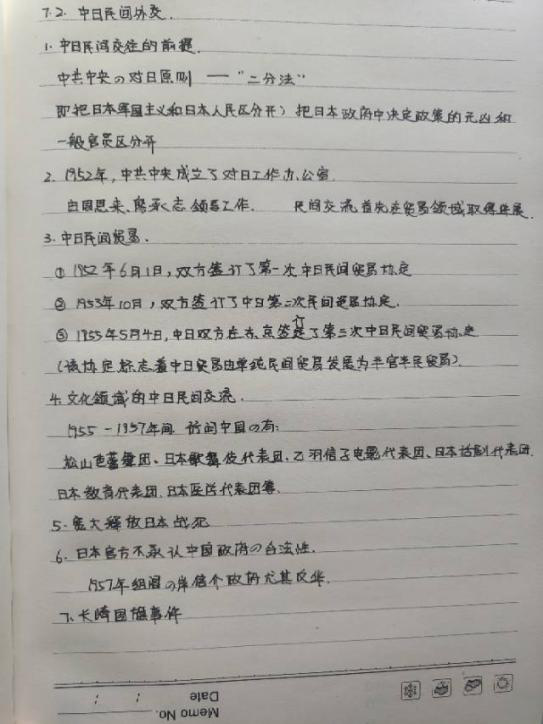 7.2. 中日民间外交.
1. 中日民间交往的前提.
中共中央の对日原则 —— "二分法"
即把日本军国主义和日本人民区分开; 把日本政府中决定政策的元凶和
一般官员区分开
2. 1952年, 中共中央成立了对日工作办公室.
由周恩来、廖承志 领导工作. 民间交流首先在贸易领域取得进展.
3. 中日民间贸易.
① 1952年6月1日, 双方签订了第一次中日民间贸易协定
② 1953年10月, 双方签订了中日第二次民间贸易协定.
③ 1955年5月4日, 中日双方在东京签订了第三次中日民间贸易协定
(该协定标志着中日贸易由单纯民间贸易发展为半官半民贸易).
4. 文化领域的中日民间交流.
1955-1957年间 访问中国の有:
松山芭蕾舞团、日本歌舞伎代表团、乙羽信子电影代表团、日本话剧代表团.
日本教育代表团. 日本医学代表团等.
5. 宽大释放日本战犯
6. 日本官方不承认中国政府の合法性.
1957年组阁の岸信介政府尤其反华.
7. 长崎国旗事件
Memo No.
Date : :